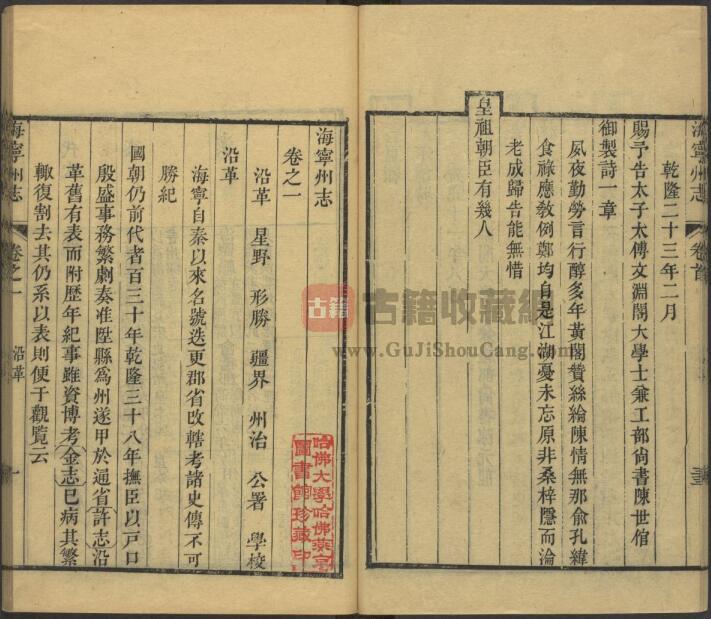 海寧州志
卷首
乾隆二十三年二月
賜予告太子太傅文淵閣大學士兼工部尚書陳世倌
御製詩一章
夙夜勤勞言行醇多年黃閣贊絲綸陳情無那俞孔緯
食祿應教例鄭均自是江湖憂未忘原非桑梓隱而淪
老成歸告能無惜
皇祖朝臣有幾人
海寧州志
卷之一
沿革 星野 形勝 疆界 州治 公署 學校
沿革
海寧自秦以來名號迭更郡省改轄考諸史傳不可
勝紀
國朝仍前代者百三十年乾隆三十八年撫臣以戸口
殷盛事務繁劇奏准陞縣爲州遂甲於通省許志沿
革舊有表而附歷年紀事雖資博考金志已病其繁
輙復割去其仍系以表則便于觀覽云
海寧州志
卷之一
沿革
一
哈佛大學哈佛燕京
圖書館珍藏印
古籍
古籍收藏網
www.GuJiShouCang.com